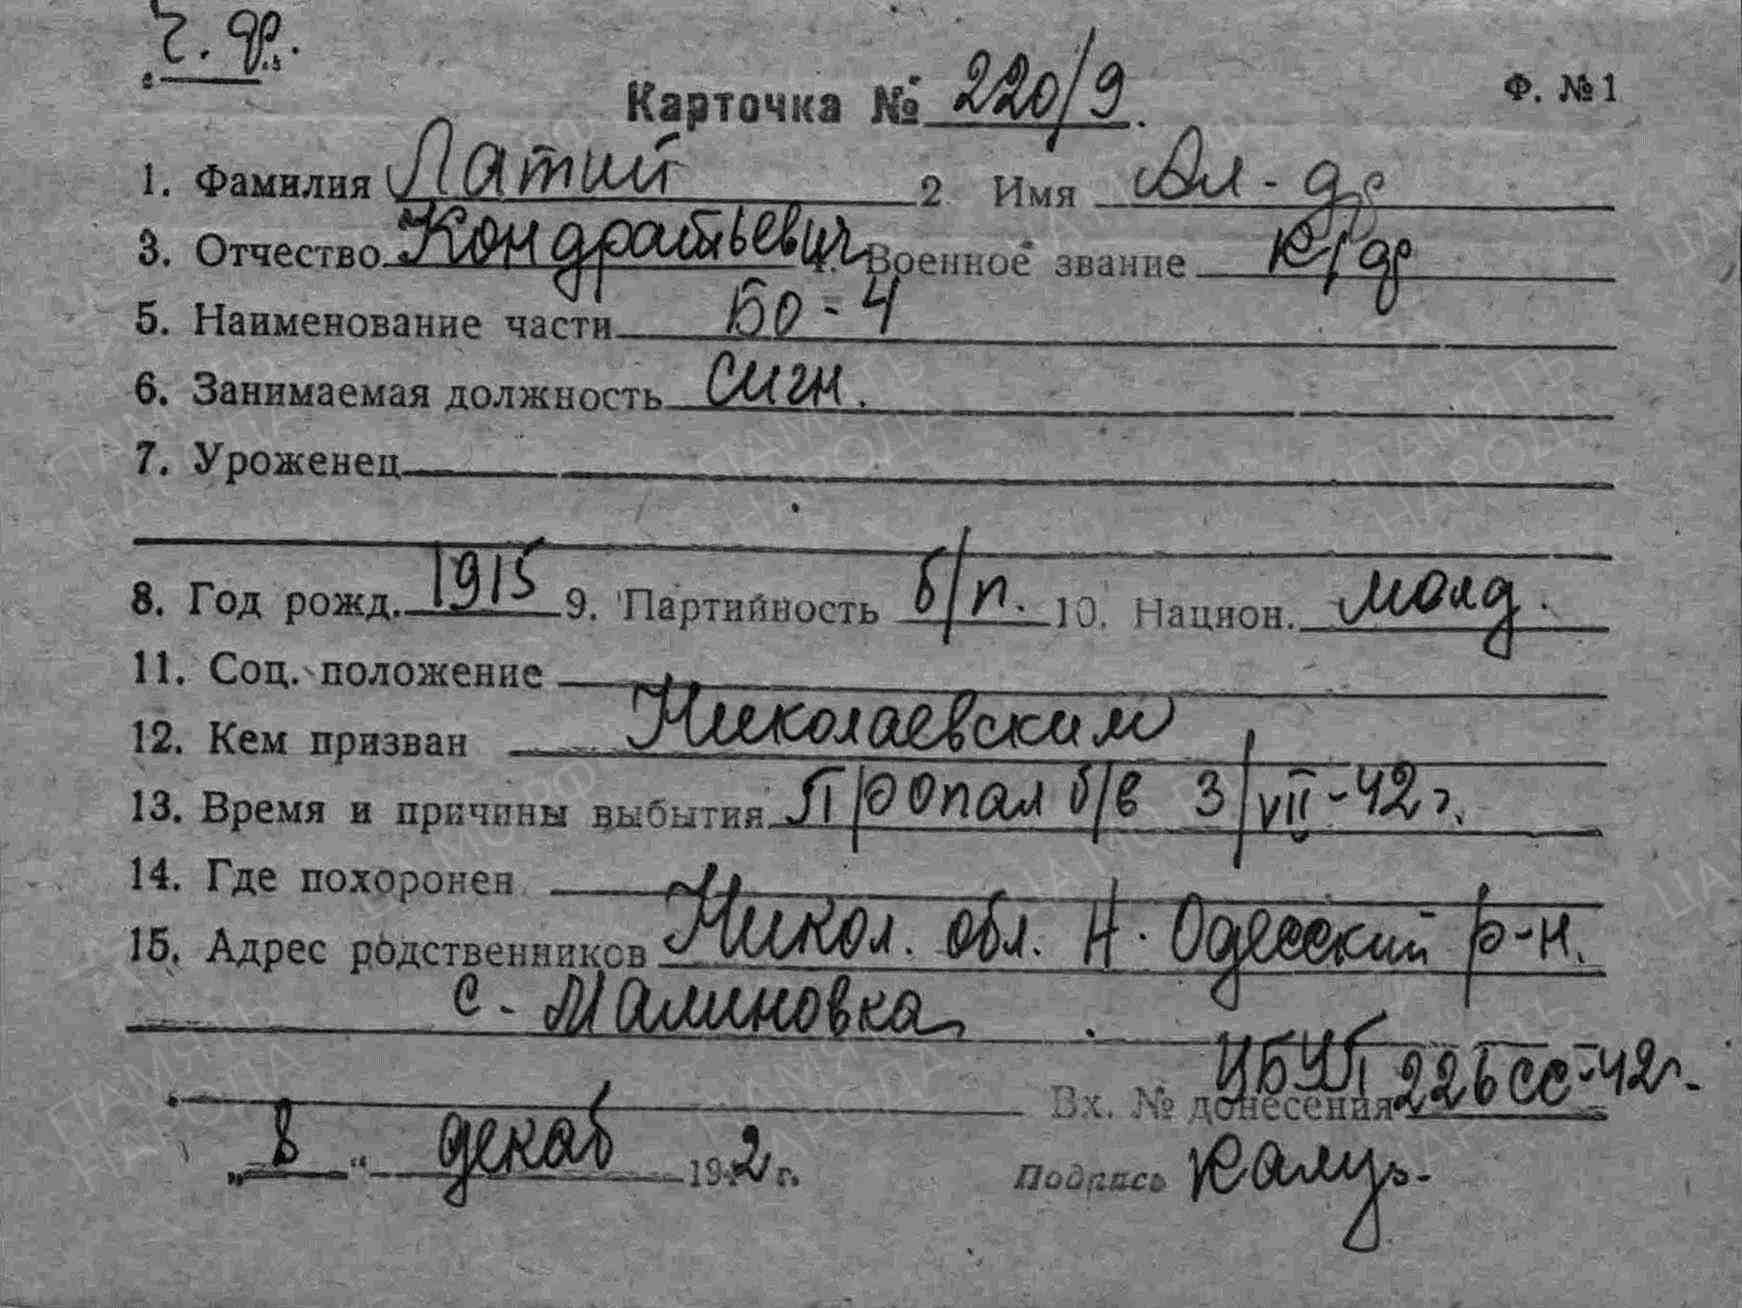 Ч. Ф.
Карточка № 220/9. Ф. №1
1. Фамилия Латий 2. Имя Ал-др
3. Отчество Кондратьевич 4. Военное звание к/ф
5. Наименование части БО-4
6. Занимаемая должность сигн.
7. Уроженец
8. Год рожд. 1915 9. Партийность б/п. 10. Национ. молд.
11. Соц. положение
12. Кем призван Николаевским
13. Время и причины выбытия Пропал б/в 3/VII-42г.
14. Где похоронен
15. Адрес родственников Никол. обл. Н. Одесский р-н.
с. Малиновка
Вх. № донесения ЦБУП 226сс-42г.
„8“ декаб 1942г. Подпись
ПАМЯТЬ НАРОДА
ЦА МО РФ